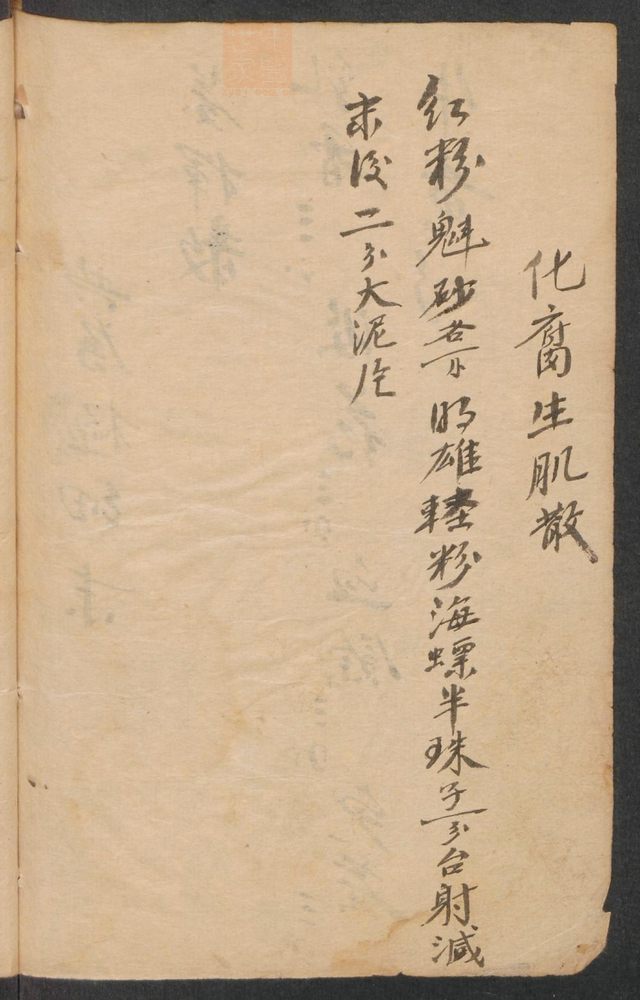 化腐生肌散
红粉魁砂各一分明雄輕粉海螵半珠子一分台射減
末後二分大泥片